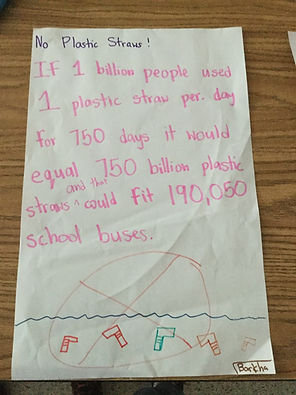 No Plastic Straws!
IF 1 billion people used
1 plastic straw per. day
for 750 days it would
equal 750 billion plastic
and that
straws ^ could fit 190,050
school buses.